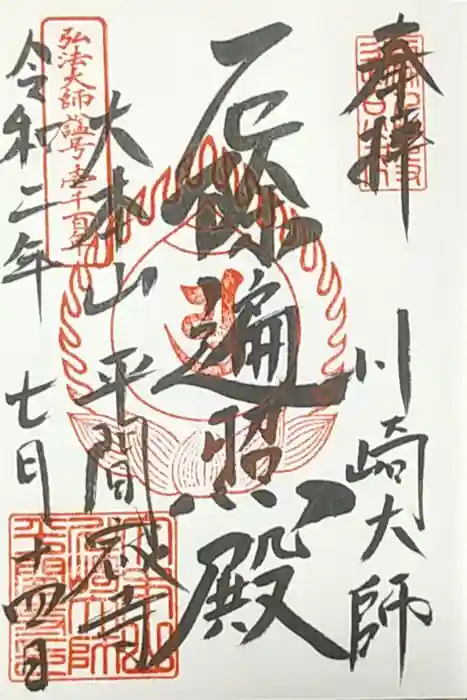 奉拝
川崎大師
厄除遍照殿
大本山 平間寺
弘法大師諡号壱千百年
令和二年 七月十四日